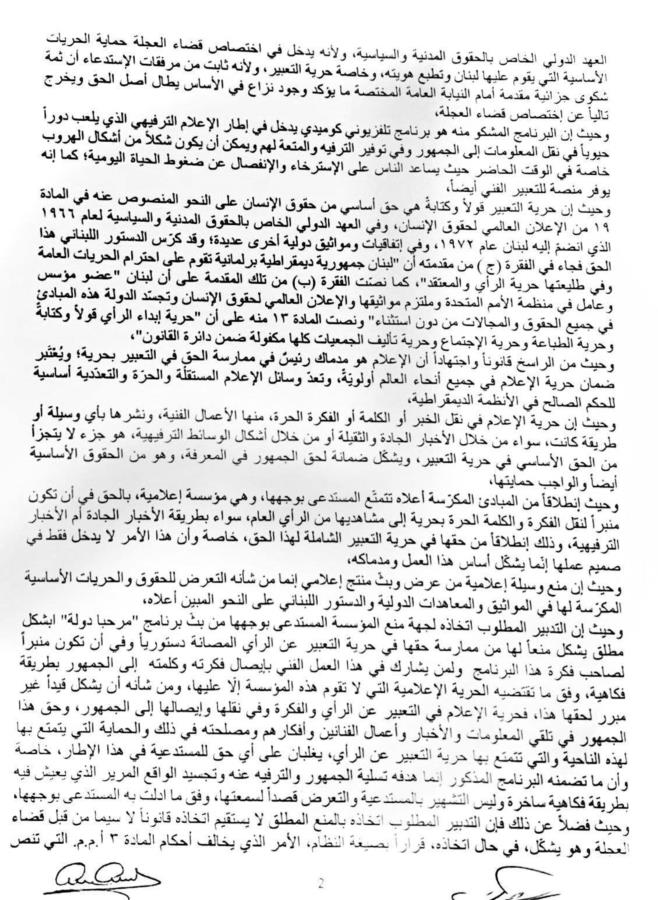 العهد الدولي الخاص بالحقوق المدنية والسياسية، ولأنه يدخل في اختصاص قضاء العجلة حماية الحريات
الأساسية التي يقوم عليها لبنان وتطبع هويته، وخاصة حرية التعبير، ولأنه ثابت من مرفقات الإستدعاء أن ثمة
شكوى جزائية مقدمة أمام النيابة العامة المختصة ما يؤكد وجود نزاع في الأساس يطال أصل الحق ويخرج
تالياً عن إختصاص قضاء العجلة،
وحيث إن البرنامج المشكو منه هو برنامج تلفزيوني كوميدي يدخل في إطار الإعلام الترفيهي الذي يلعب دوراً
حيوياً في نقل المعلومات إلى الجمهور وفي توفير الترفيه والمتعة لهم ويمكن أن يكون شكلاً من أشكال الهروب
خاصة في الوقت الحاضر حيث يساعد الناس على الإسترخاء والإنفصال عن ضغوط الحياة اليومية؛ كما إنه
يوفر منصة للتعبير الفني أيضاً،
وحيث إن حرية التعبير قولاً وكتابةً هي حق أساسي من حقوق الإنسان على النحو المنصوص عنه في المادة
١٩ من الإعلان العالمي لحقوق الإنسان، وفي العهد الدولي الخاص بالحقوق المدنية والسياسية لعام ١٩٦٦
الذي انضمّ إليه لبنان عام ١٩٧٢، وفي إتفاقيات ومواثيق دولية أخرى عديدة؛ وقد كرّس الدستور اللبناني هذا
الحق فجاء في الفقرة (ج ) من مقدمته أن "لبنان جمهورية ديمقراطية برلمانية تقوم على احترام الحريات العامة
وفي طليعتها حرية الرأي والمعتقد"، كما نصّت الفقرة (ب) من تلك المقدمة على أن لبنان "عضو مؤسس
وعامل في منظمة الأمم المتحدة وملتزم مواثيقها والإعلان العالمي لحقوق الإنسان وتجسّد الدولة هذه المبادئ
في جميع الحقوق والمجالات من دون استثناء" ونصت المادة ١٣ منه على أن "حرية إبداء الرأي قولاً وكتابةً
وحرية الطباعة وحرية الإجتماع وحرية تأليف الجمعيات كلها مكفولة ضمن دائرة القانون"،
وحيث من الراسخ قانوناً واجتهاداً أن الإعلام هو مدماك رئيسٌ في ممارسة الحق في التعبير بحرية؛ ويُعْتَبر
ضمان حرية الإعلام في جميع أنحاء العالم أولويّةً، وتعدّ وسائل الإعلام المستقلّة والحرّة والتعدّدية أساسية
للحكم الصالح في الأنظمة الديمقراطية،
وحيث إن حرية الإعلام في نقل الخبر أو الكلمة أو الفكرة الحرة، منها الأعمال الفنية، ونشرها بأي وسيلة أو
طريقة كانت، سواء من خلال الأخبار الجادة والثقيلة أو من خلال أشكال الوسائط الترفيهية، هو جزء لا يتجزأ
من الحق الأساسي في حرية التعبير، ويشكّل ضمانة لحق الجمهور في المعرفة، وهو من الحقوق الأساسية
أيضاً والواجب حمايتها،
وحيث إنطلاقاً من المبادئ المكرّسة أعلاه تتمتّع المستدعى بوجهها، وهي مؤسسة إعلامية، بالحق في أن تكون
منبراً لنقل الفكرة والكلمة الحرة بحرية إلى مشاهديها من الرأي العام، سواء بطريقة الأخبار الجادة أم الأخبار
الترفيهية، وذلك إنطلاقاً من حقها في حرية التعبير الشاملة لهذا الحق، خاصة وأن هذا الأمر لا يدخل فقط في
صميم عملها إنّما يشكّل أساس هذا العمل ومدماكه،
وحيث إن منع وسيلة إعلامية من عرض وبثّ منتج إعلامي إنما من شأنه التعرض للحقوق والحريات الأساسية
المكرّسة لها في المواثيق والمعاهدات الدولية والدستور اللبناني على النحو المبين أعلاه،
وحيث إن التدبير المطلوب اتخاذه لجهة منع المؤسسة المستدعى بوجهها من بثّ برنامج "مرحبا دولة" ابشكل
مطلق يشكل منعاً لها من ممارسة حقها في حرية التعبير عن الرأي المصانة دستورياً وفي أن تكون منبراً
لصاحب فكرة هذا البرنامج ولمن يشارك في هذا العمل الفني بإيصال فكرته وكلمته إلى الجمهور بطريقة
فكاهية، وفق ما تقتضيه الحرية الإعلامية التي لا تقوم هذه المؤسسة إلّا عليها، ومن شأنه أن يشكل قيداً غير
مبرر لحقها هذا، فحرية الإعلام في التعبير عن الرأي والفكرة وفي نقلها وإيصالها إلى الجمهور، وحق هذا
الجمهور في تلقي المعلومات والأخبار وأعمال الفنانين وأفكارهم ومصلحته في ذلك والحماية التي يتمتع بها
لهذه الناحية والتي تتمتع بها حرية التعبير عن الرأي، يغلبان على أي حق للمستدعية في هذا الإطار، خاصة
وأن ما تضمنه البرنامج المذكور إنما هدفه تسلية الجمهور والترفيه عنه وتجسيد الواقع المرير الذي يعيش فيه
بطريقة فكاهية ساخرة وليس التشهير بالمستدعية والتعرض قصداً لسمعتها، وفق ما ادلت به المستدعى بوجهها،
وحيث فضلاً عن ذلك فإن التدبير المطلوب اتخاذه بالمنع المطلق لا يستقيم اتخاذه قانوناً لا سيما من قبل قضاء
العجلة وهو يشكّل، في حال اتخاذه، قراراً بصيغة النظام، الأمر الذي يخالف أحكام المادة ٣ أ.م.م. التي تنص
2